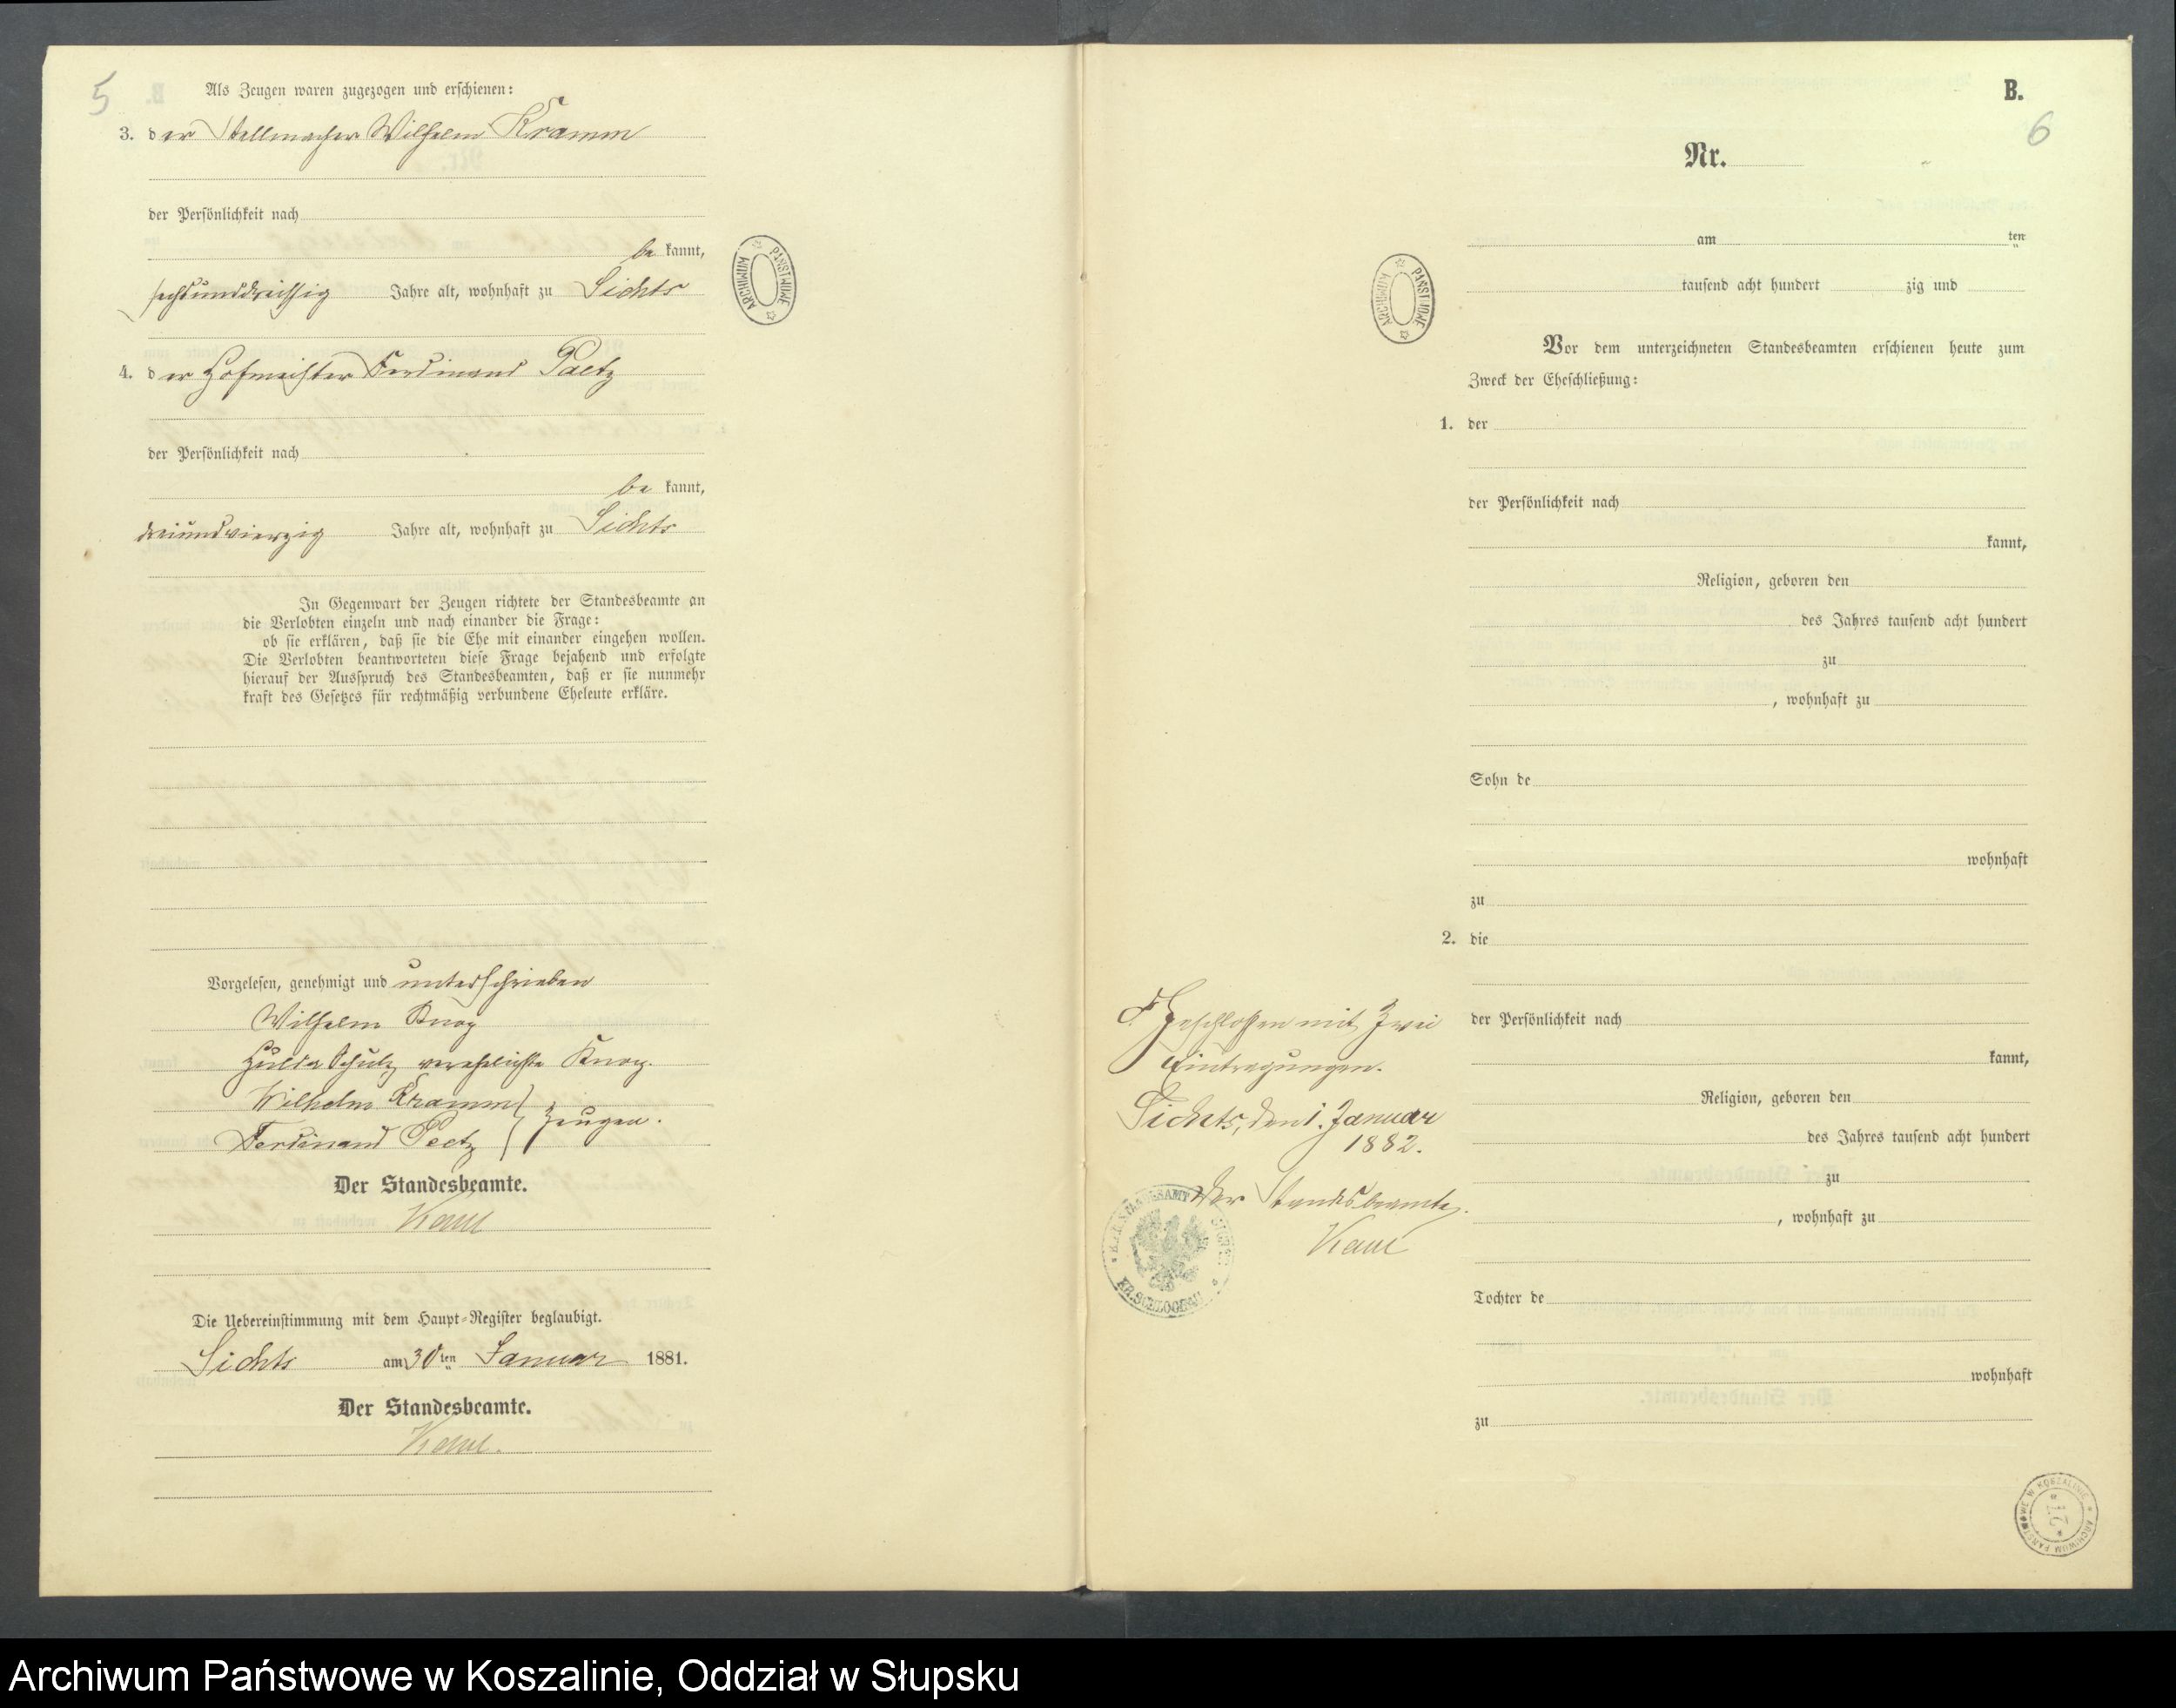 5
Als Zeugen waren zugezogen und erschienen:
3. der Stellmacher Wilhelm Kramm
der Persönlichkeit nach
be kannt,
sechsunddreißig Jahre alt, wohnhaft zu Sichts
4. der Hofmeister Ferdinand Paetz
der Persönlichkeit nach
be kannt,
dreiundvierzig Jahre alt, wohnhaft zu Sichts
In Gegenwart der Zeugen richtete der Standesbeamte an
die Verlobten einzeln und nach einander die Frage:
ob sie erklären, daß sie die Ehe mit einander eingehen wollen.
Die Verlobten beantworteten diese Frage bejahend und erfolgte
hierauf der Ausspruch des Standesbeamten, daß er sie nunmehr
kraft des Gesetzes für rechtmäßig verbundene Eheleute erkläre.
Vorgelesen, genehmigt und unterschrieben
Wilhelm Knoy
Hulda Schulz verehelichte Knoy.
Wilhelm Kramm
Ferdinand Peetz } Zeugen.
Der Standesbeamte.
Die Uebereinstimmung mit dem Haupt-Register beglaubigt.
Sichts am 30ten Januar 1881.
Der Standesbeamte.
ARCHIWUM PAŃSTWOWE
B.
6
Nr.
am ten
tausend acht hundert zig und
Vor dem unterzeichneten Standesbeamten erschienen heute zum
Zweck der Eheschließung:
1. der
der Persönlichkeit nach
kannt,
Religion, geboren den
des Jahres tausend acht hundert
zu
, wohnhaft zu
Sohn de
wohnhaft
zu
2. die
der Persönlichkeit nach
kannt,
Religion, geboren den
des Jahres tausend acht hundert
zu
, wohnhaft zu
Tochter de
wohnhaft
zu
Geschlossen mit Zwei
Eintragungen.
Sichts, den 1. Januar
1882.
Der Standesbeamte.
KR. SCHLOCHAU
ARCHIWUM PAŃSTWOWE
ARCHIWUM PAŃSTWOWE W KOSZALINIE
27
Archiwum Państwowe w Koszalinie, Oddział w Słupsku